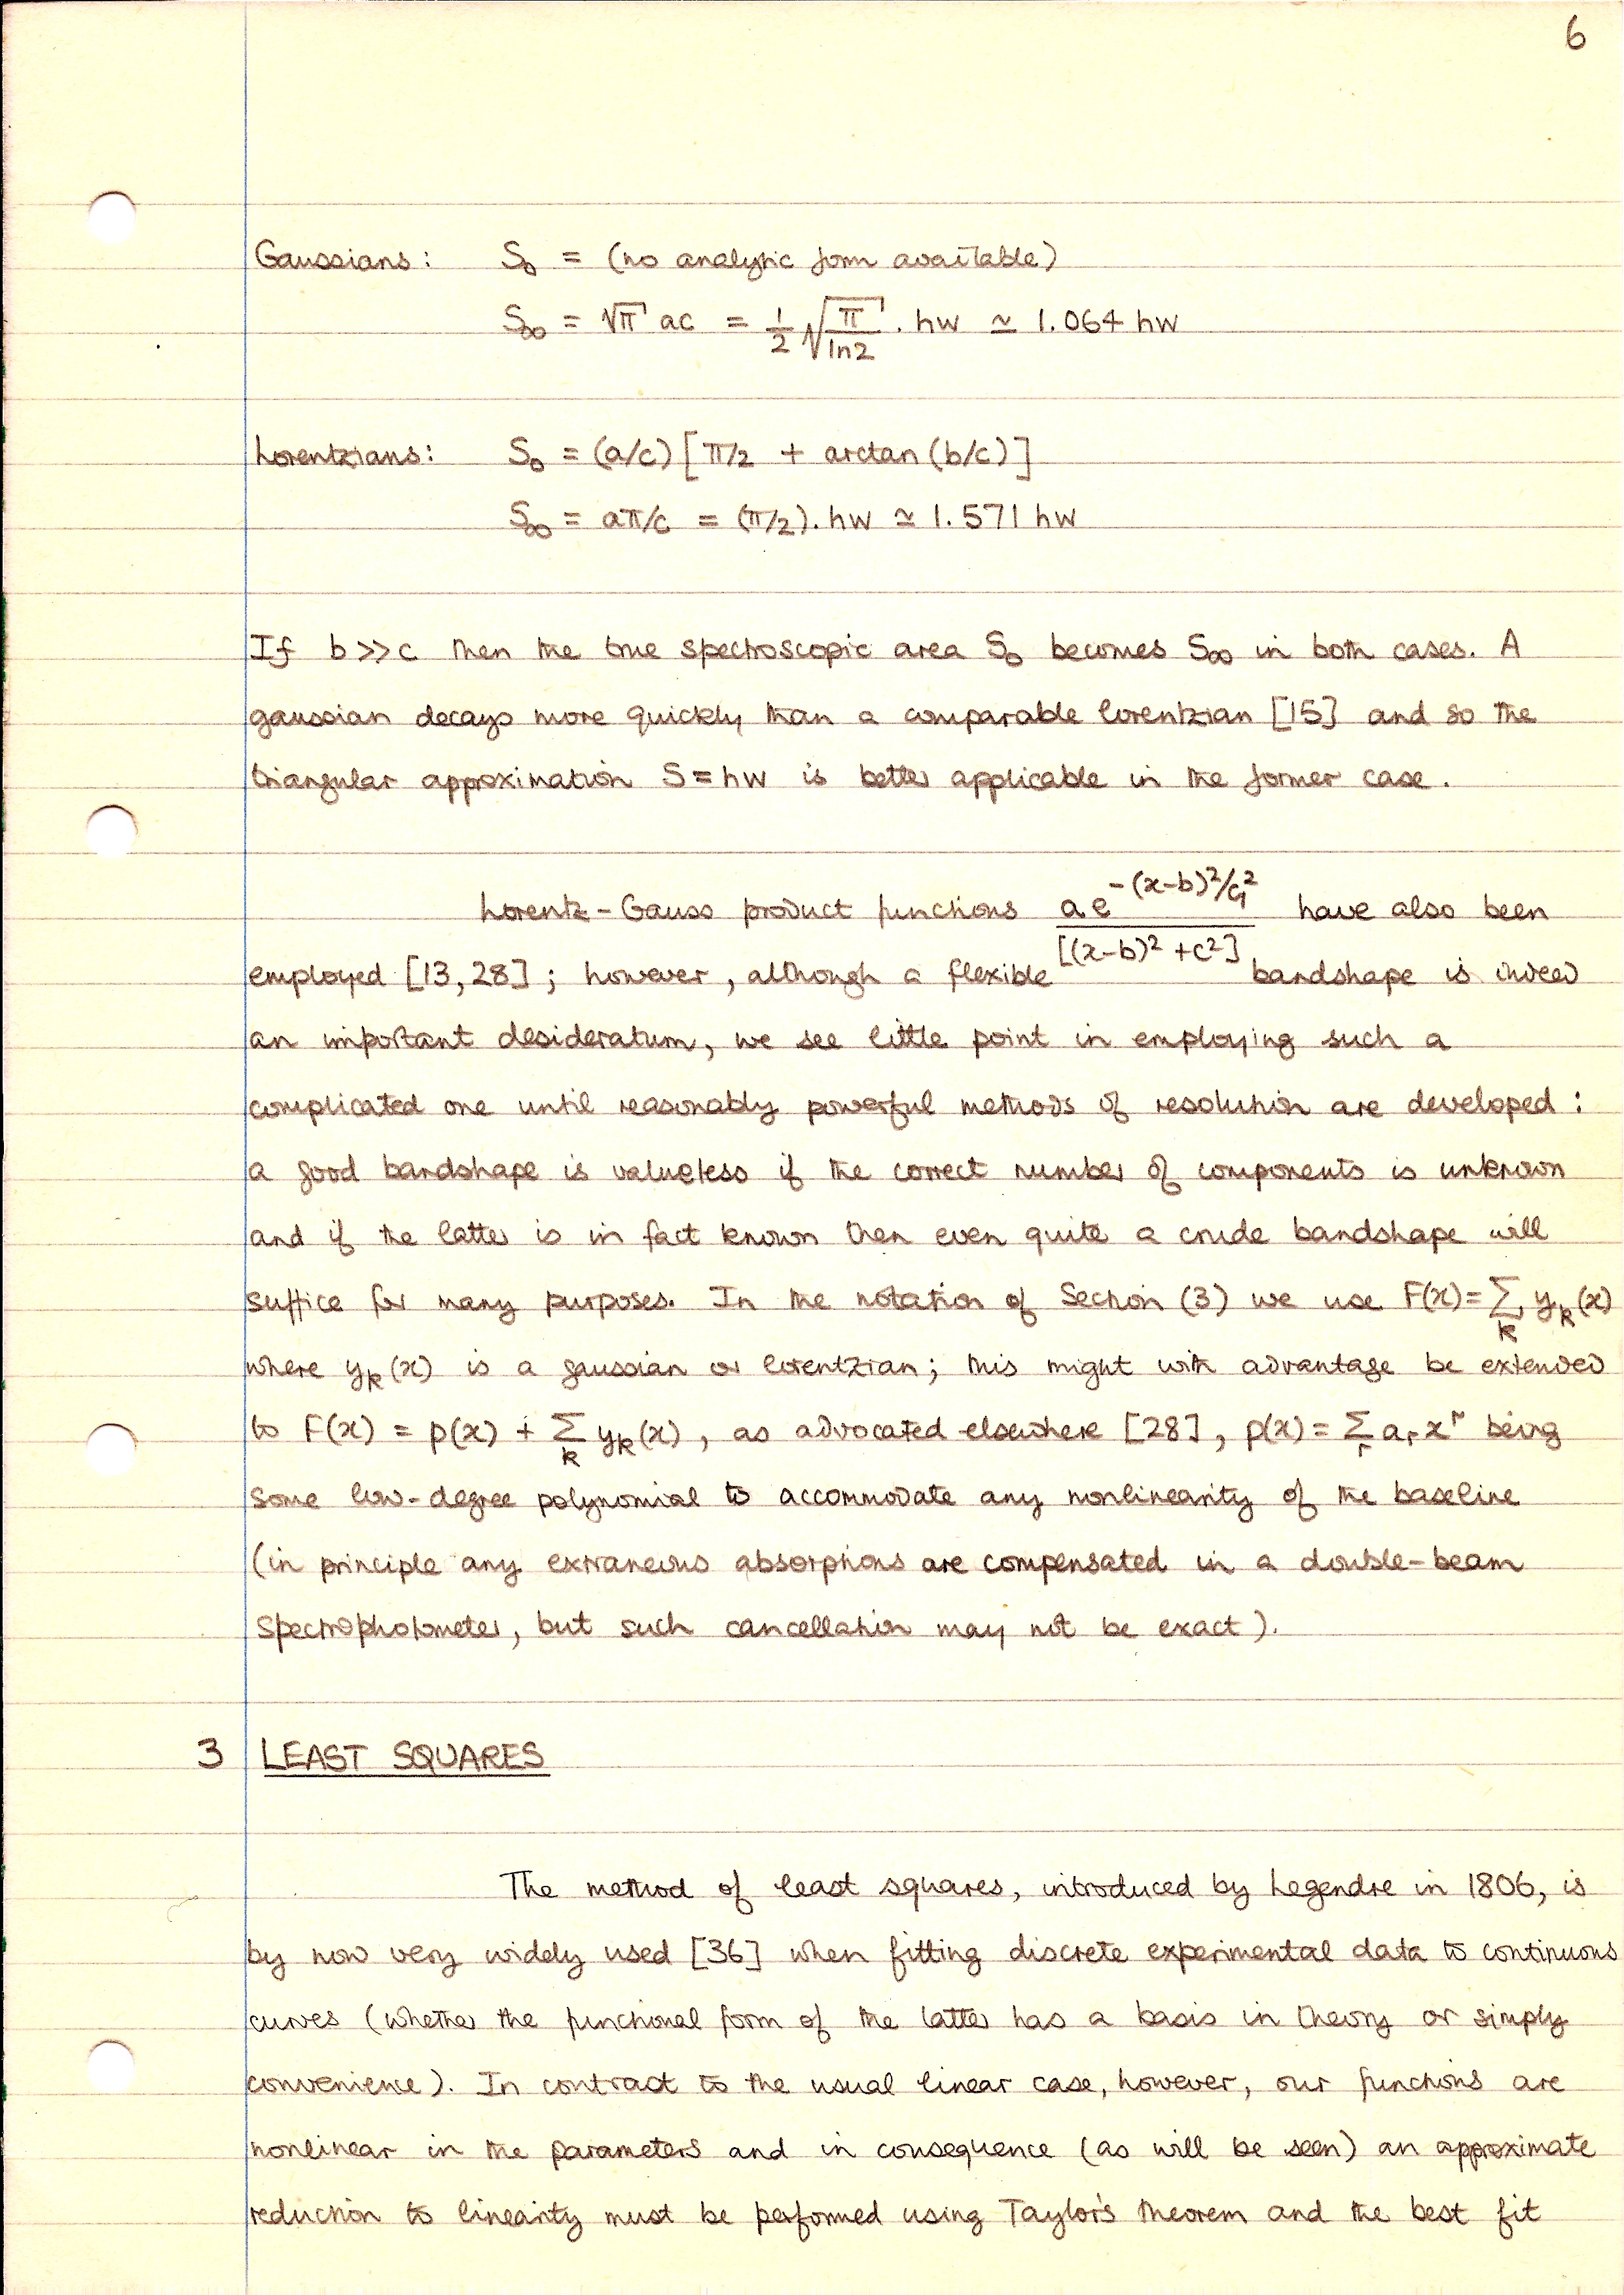 6
Gaussians: S₀ = (no analytic form available)
S∞ = √π ac = ½ √(π/ln2) . hw ≃ 1.064 hw
Lorentzians: S₀ = (a/c) [π/2 + arctan (b/c)]
S∞ = aπ/c = (π/2). hw ≃ 1.571 hw
If b >> c then the true spectroscopic area S₀ becomes S∞ in both cases. A
gaussian decays more quickly than a comparable lorentzian [15] and so the
triangular approximation S = hw is better applicable in the former case.
Lorentz-Gauss product functions a e^{-(x-b)²/c₁²} / [(x-b)² + c²] have also been
employed [13,28]; however, although a flexible bandshape is indeed
an important desideratum, we see little point in employing such a
complicated one until reasonably powerful methods of resolution are developed:
a good bandshape is valueless if the correct number of components is unknown
and if the latter is in fact known then even quite a crude bandshape will
suffice for many purposes. In the notation of Section (3) we use F(x) = Σ_k y_k(x)
where y_k(x) is a gaussian or lorentzian; this might with advantage be extended
to F(x) = p(x) + Σ_k y_k(x), as advocated elsewhere [28], p(x) = Σ_r a_r x^r being
some low-degree polynomial to accommodate any nonlinearity of the baseline
(in principle any extraneous absorptions are compensated in a double-beam
spectrophotometer, but such cancellation may not be exact).
3 LEAST SQUARES
The method of least squares, introduced by Legendre in 1806, is
by now very widely used [36] when fitting discrete experimental data to continuous
curves (whether the functional form of the latter has a basis in theory or simply
convenience). In contract to the usual linear case, however, our functions are
nonlinear in the parameters and in consequence (as will be seen) an approximate
reduction to linearity must be performed using Taylor's theorem and the best fit